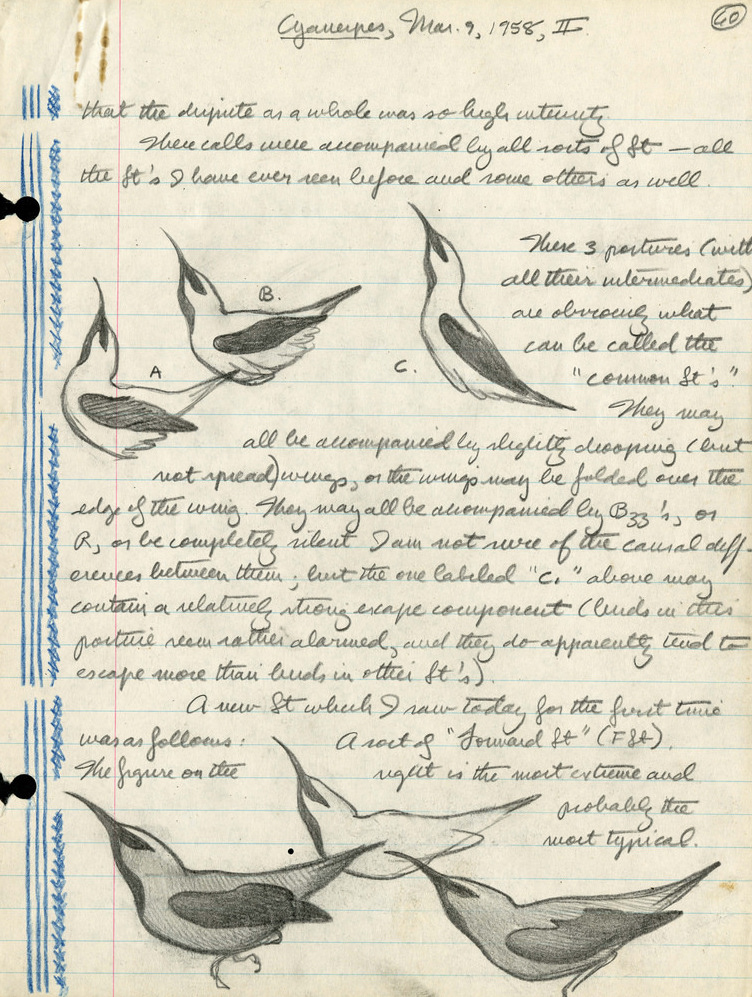 Cyanerpes, Mar. 9, 1958, II
60
that the dispute as a whole was so high intensity
These calls were accompanied by all sorts of St — all
the St's I have ever seen before and some others as well.
These 3 postures (with
all their intermediates)
are obviously what
can be called the
"common St's".
They may
A
B.
C.
all be accompanied by slightly drooping (but
not spread) wings, or the wings may be folded over the
edge of the wing. They may all be accompanied by B33's, or
R, or be completely silent I am not sure of the causal diff-
erences between them; but the one labeled "C." above may
contain a relatively strong escape component (birds in this
posture seem rather alarmed, and they do apparently tend to
escape more than birds in other St's).
A new St which I saw today for the first time
was as follows: A sort of "Forward St" (F St).
The figure on the right is the most extreme and
probably the
most typical.